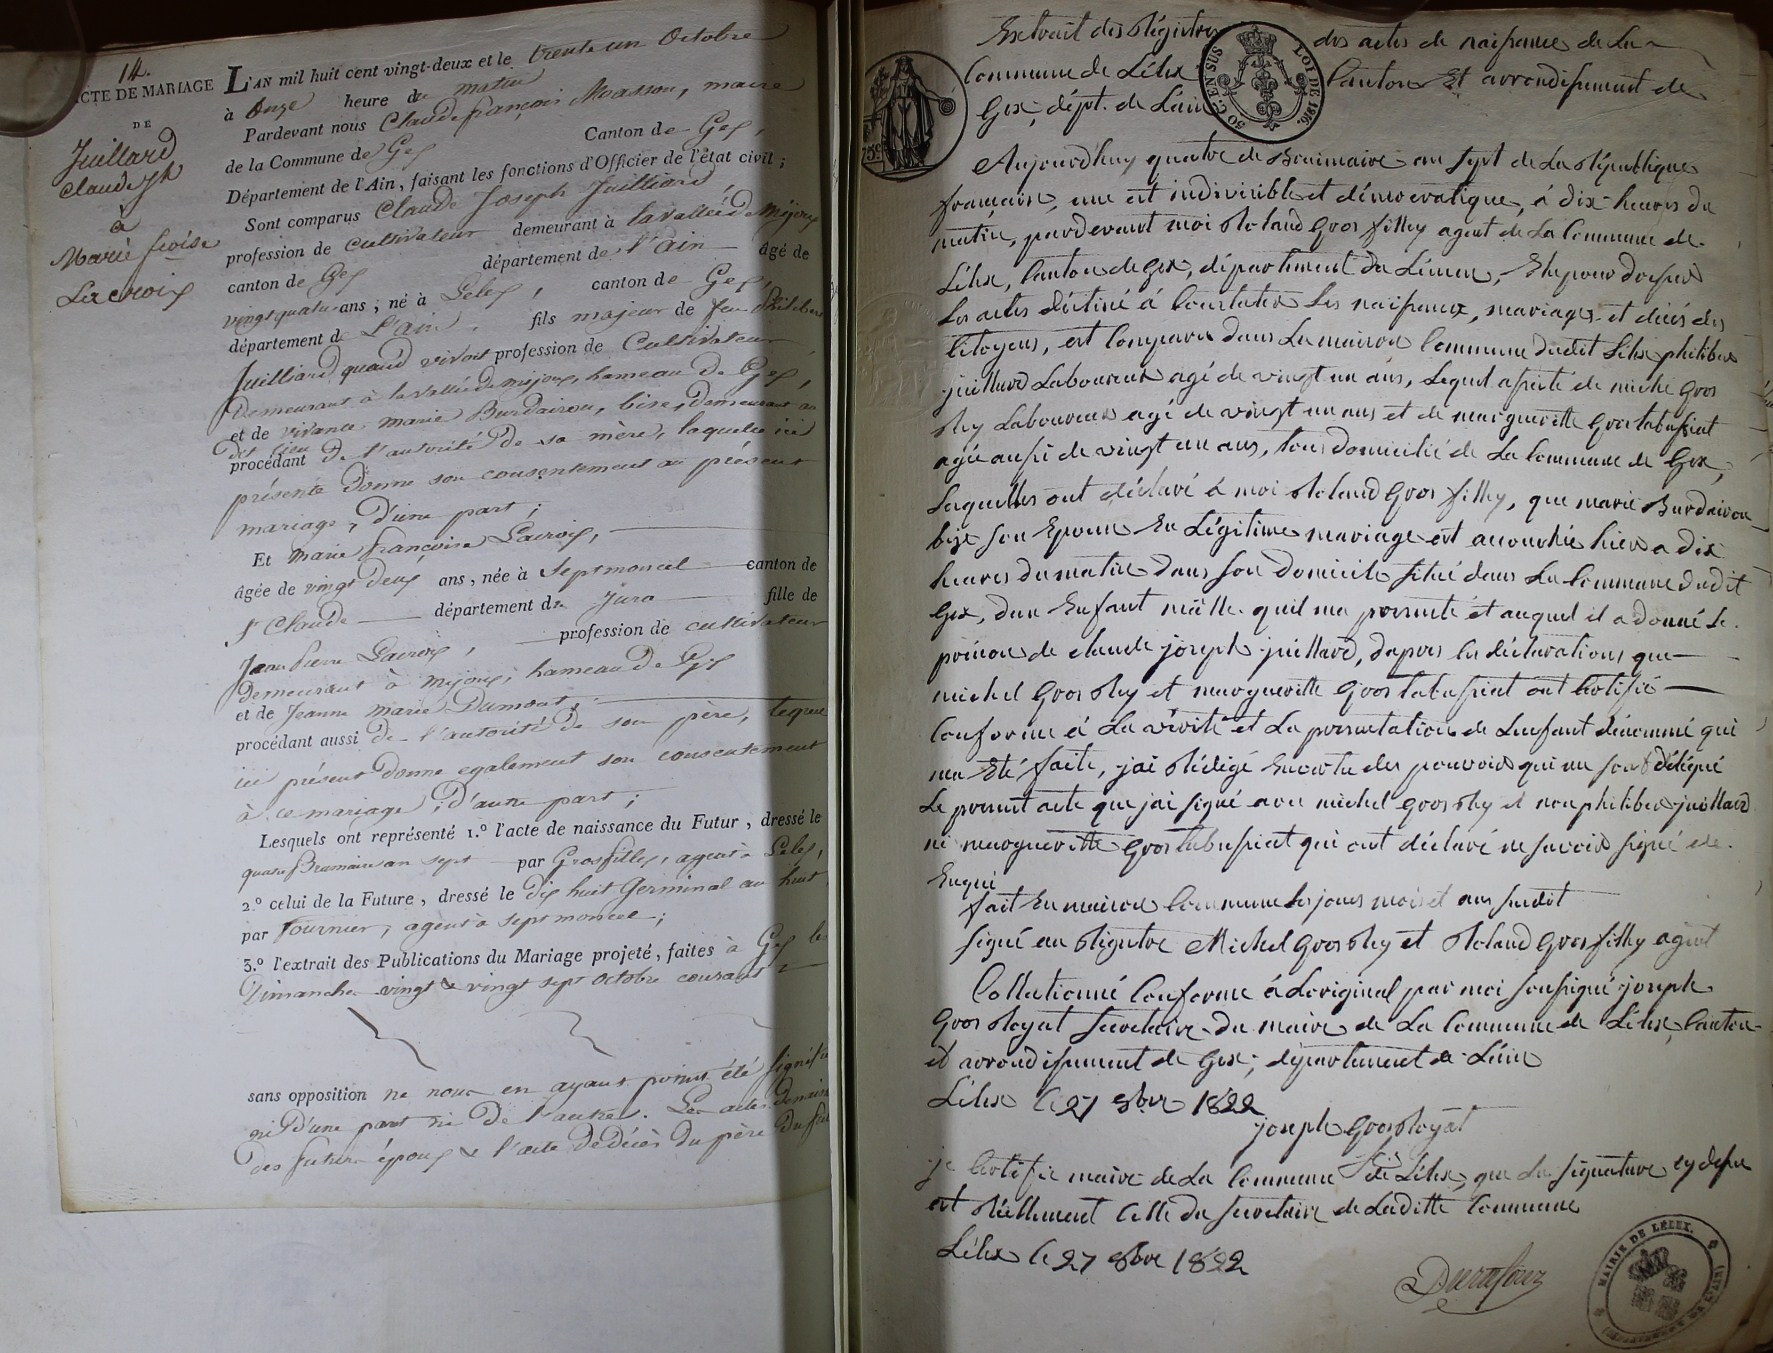 14.
ACTE DE MARIAGE
DE
Juillard
Claude Jh
à
Marie froise
Lacroix
L'AN mil huit cent vingt-deux et le trente un Octobre
à Onze heure du matin
Pardevant nous Claude françois Masson, maire
de la Commune de Gex Canton de Gex,
Département de l'Ain, faisant les fonctions d'Officier de l'état civil;
Sont comparus Claude Joseph Juilliard,
profession de cultivateur demeurant à la vallée de Mijoux
canton de Gex département de l'ain âgé de
vingt quatre ans, né à Lelex, canton de Gex,
département de L'ain. fils majeur de feu Philibert
Juilliard quand vivoit profession de Cultivateur
demeurant à la vallée de mijoux, hameau de Gex,
et de vivante marie Burdairon, bise, demeurant au
dit lieu
procédant de l'autorité de sa mère, laquelle ici
présente donne son consentement au présent
mariage, d'une part;
Et marie françoise Lacroix,
âgée de vingt deux ans, née à Septmoncel canton de
St Claude département du Jura fille de
Jean Pierre Lacroix, profession de cultivateur
demeurant à mijoux, hameau de Gex
et de Jeanne marie Dumont,
procédant aussi de l'autorité de son père, lequel
ici présent donne egalement son consentement
à ce mariage, d'autre part;
Lesquels ont représenté 1.º l'acte de naissance du Futur, dressé le
quatre Brumaire an sept par Grosfilley, agent à Lelex,
2.º celui de la Future, dressé le dix huit Germinal an huit
par Fournier, agent à Septmoncel;
3.º l'extrait des Publications du Mariage projeté, faites à Gex le
Dimanche vingt & vingt sept Octobre courant
sans opposition ne nous en ayant point été signifié
ni d'une part ni de l'autre. Les actes de naiss
des futurs époux & l'acte de décès du père du fu
Extrait des Régistres des actes de naissance de La
Commune de Lélex Canton Et arrondissement de
Gex, dépt. de L'ain
50 C. EN SUS
LOI DE 1816.
Aujourd'huy quatre de Brumaire an sept de La République
francaise, une et indivisible et démocratique, à dix heures du
matin, pardevant moi Roland Gros filley agent de La Commune de
Lélex, Canton de Gex, département du Léman, Elu pour dresser
Les actes déstiné à Constater Les naissances, mariages et décès des
Citoyens, est Comparu dans La maison Commune dudit Lélex philiber
juillard Laboureur agé de vingt un ans, Lequel assisté de miche Gros
Rey Laboureur agé de vingt un ans et de margueritte Gros tabusiat
agée aussi de vingt un ans, tous domicilié de La Commune de Gex,
Lesquelles ont déclaré à moi Roland Gros filley, que marie Burdairon
bize son Epouse En Légitime mariage est accouchée hier a dix
heures du matin dans son domicile situé dans La Commune dudit
Gex, d'un Enfant mâlle quil ma presenté et auquel il a donné Le
prénom de claude joseph juillard, dapres les déclarations que
michel Gros Rey et marguerite Gros tabusiat ont Certifié
Conforme à La vérité et La présentation de Lenfant dénommé qui
ma Eté faite, jai Rédigé Envertu des pouvoirs qui me sont délégué
Le présent acte que jai signé avec michel Gros Rey et non philiber juillard
ni marguerite Gros tabusiat qui ont déclaré ne savoir signé de
Enquis
fait En maison Commune Les jours mois et an susdit
signé au Régistre Michel Gros Rey et Roland Gros filley agent
Collationné Conforme à Loriginal par moi soussigné joseph
Gros Royat Secretaire du maire de La Commune de Lélex, Canton
et arrondissement de Gex, département de Lain
Lélex le 27 8bre 1822
joseph Gros Royat
je Certifie maire de La Commune de Lélex, que La signature cy dessus
est Réellement Celle du Secretaire de Laditte Commune
Lélex le 27 8bre 1822
MAIRIE DE LELEX.
DÉPARTEMENT DE L'AIN